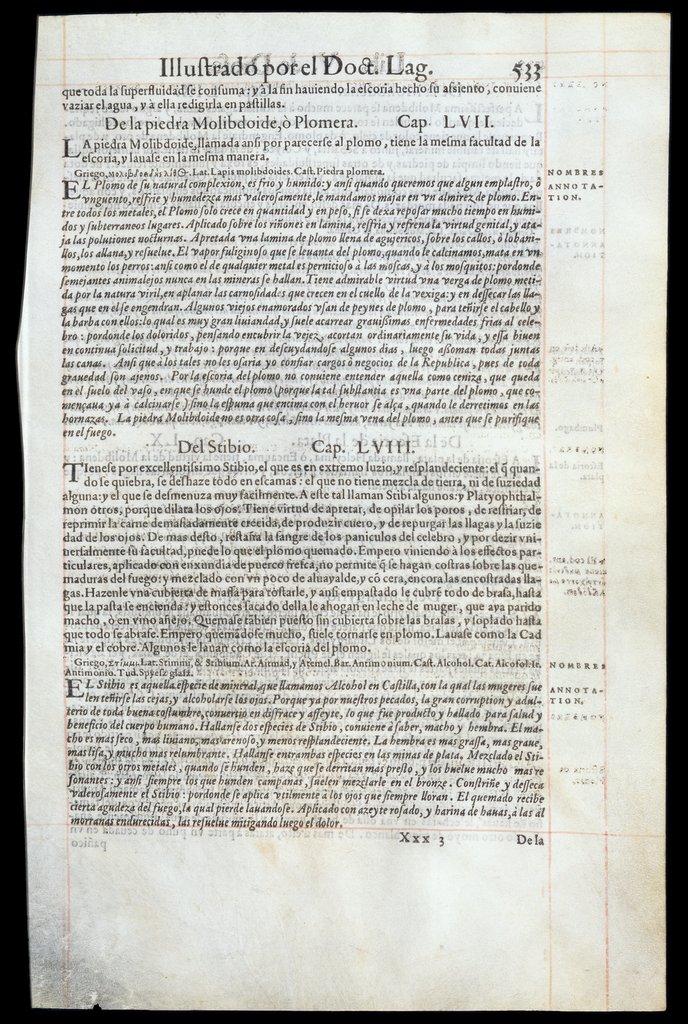 Illustrado por el Doct. Lag. 533
que toda la superfluidad se consuma: y à la fin hauiendo la escoria hecho su assiento, conuiene
vaziar el agua, y à ella redigirla en pastillas.
De la piedra Molibdoide, ò Plomera. Cap LVII.
LA piedra Molibdoide, llamada ansi por parecerse al plomo, tiene la mesma facultad de la
escoria, y lauase en la mesma manera.
Griego, μολιβδοειδὴς λίθος. Lat. Lapis molibdoides. Cast. Piedra plomera.
NOMBRES
EL Plomo de su natural complexion, es frio y humido: y ansi quando queremos que algun emplastro, ò
ANNOTA-
vnguento, resfrie y humedezca mas valerosamente, le mandamos majar en vn almirez de plomo. En-
TION.
tre todos los metales, el Plomo solo crece en quantidad y en peso, si se dexa reposar mucho tiempo en humi-
dos y subterraneos lugares. Aplicado sobre los riñones en lamina, resfria y refrena la virtud genital, y ata-
ja las polutiones nocturnas. Apretada vna lamina de plomo llena de agujericos, sobre los callos, ò lobani-
llos, los allana, y resuelue. El vapor fuliginoso que se leuanta del plomo, quando le calcinamos, mata en vn
momento los perros: ansi como el de qualquier metal es pernicioso à las moscas, y à los mosquitos: por donde
semejantes animalejos nunca en las mineras se hallan. Tiene admirable virtud vna verga de plomo meti-
da por la natura viril, en aplanar las carnosidades que crecen en el cuello de la vexiga: y en dessecar las lla-
gas que en el se engendran. Algunos viejos enamorados vsan de peynes de plomo, para teñirse el cabello y
la barba con ellos: lo qual es muy gran liuiandad, y suele acarrear grauissimas enfermedades frias al cele-
bro: pordonde los doloridos, pensando encubrir la vejez, acortan ordinariamente su vida, y essa biuen
en continua solicitud, y trabajo: porque en descuydandose algunos dias, luego assoman todas juntas
las canas. Ansi que à los tales no les osaria yo confiar cargos ò negocios de la Republica, pues de toda
grauedad son ajenos. Por la escoria del plomo no conuiene entender aquella como ceniza, que queda
en el suelo del vaso, en que se hunde el plomo (porque la tal substantia es vna parte del plomo, que co-
mençaua ya à calcinarse) sino la espuma que encima con el heruor se alça, quando le derretimos en las
hornazas. La piedra Molibdoide no es otra cosa, sino la mesma vena del plomo, antes que se purifique
en el fuego.
Del Stibio. Cap. LVIII.
TIenese por excellentissimo Stibio, el que es en extremo luzio, y resplandeciente: el q̃ quan-
do se quiebra, se deshaze todo en escamas: el que no tiene mezcla de tierra, ni de suziedad
alguna: y el que se desmenuza muy facilmente. A este tal llaman Stibi algunos: y Platyophthal-
mon otros, porque dilata los ojos. Tiene virtud de apretar, de opilar los poros, de resfriar, de
reprimir la carne demasiadamente crecida, de produzir cuero, y de repurgar las llagas y la suzie
dad de los ojos. De mas desto, restaña la sangre de los paniculos del celebro, y por dezir vni-
uersalmente su facultad, puede lo que el plomo quemado. Empero viniendo à los effectos par-
ticulares, aplicado con enxundia de puerco fresca, no permite q̃ se hagan costras sobre las que-
maduras del fuego: y mezclado con vn poco de aluayalde, y cõ cera, encora las encostradas lla-
gas. Hazenle vna cubierta de massa para tostarle, y ansi empastado le cubrẽ todo de brasa, hasta
que la pasta se encienda: y estonces sacado della le ahogan en leche de muger, que aya parido
macho, ò en vino añejo. Quemase tãbien puesto sin cubierta sobre las brasas, y soplado hasta
que todo se abrase. Empero quemãdose mucho, suele tornarse en plomo. Lauase como la Cad
mia y el cobre. Algunos le lauan como la escoria del plomo.
Griego, Στίμμι. Lat. Stimmi, & Stibium. Ar. Aitmad, y Atemel. Bar. Antimonium. Cast. Alcohol. Cat. Alcofol. It.
NOMBRES
Antimonio. Tud. Spyesz glasz.
EL Stibio es aquella especie de mineral, que llamamos Alcohol en Castilla, con la qual las mugeres sue
ANNOTA-
len teñirse las cejas, y alcoholarse los ojos. Porque ya por nuestros pecados, la gran corruption y adul-
TION.
terio de toda buena costumbre, conuersio en disfrace y affeyte, lo que fue producto y hallado para salud y
beneficio del cuerpo humano. Hallanse dos especies de Stibio, conuiene à saber, macho y hembra. El ma-
cho es mas seco, mas liuiano, mas arenoso, y menos resplandeciente. La hembra es mas grassa, mas graue,
mas lisa, y mucho mas relumbrante. Hallanse entrambas especies en las minas de plata. Mezclado el Sti-
bio con los otros metales, quando se hunden, haze que se derritan mas presto, y los buelue mucho mas re
sonantes: y ansi siempre los que hunden campanas, suelen mezclarle en el bronze. Constriñe y desseca
valerosamente el Stibio: pordonde se aplica vtilmente à los ojos que siempre lloran. El quemado recibe
cierta agudeza del fuego, la qual pierde lauandose. Aplicado con azeyte rosado, y harina de hauas, à las al
morranas endurecidas, las resuelue mitigando luego el dolor.
Xxx 3 De la